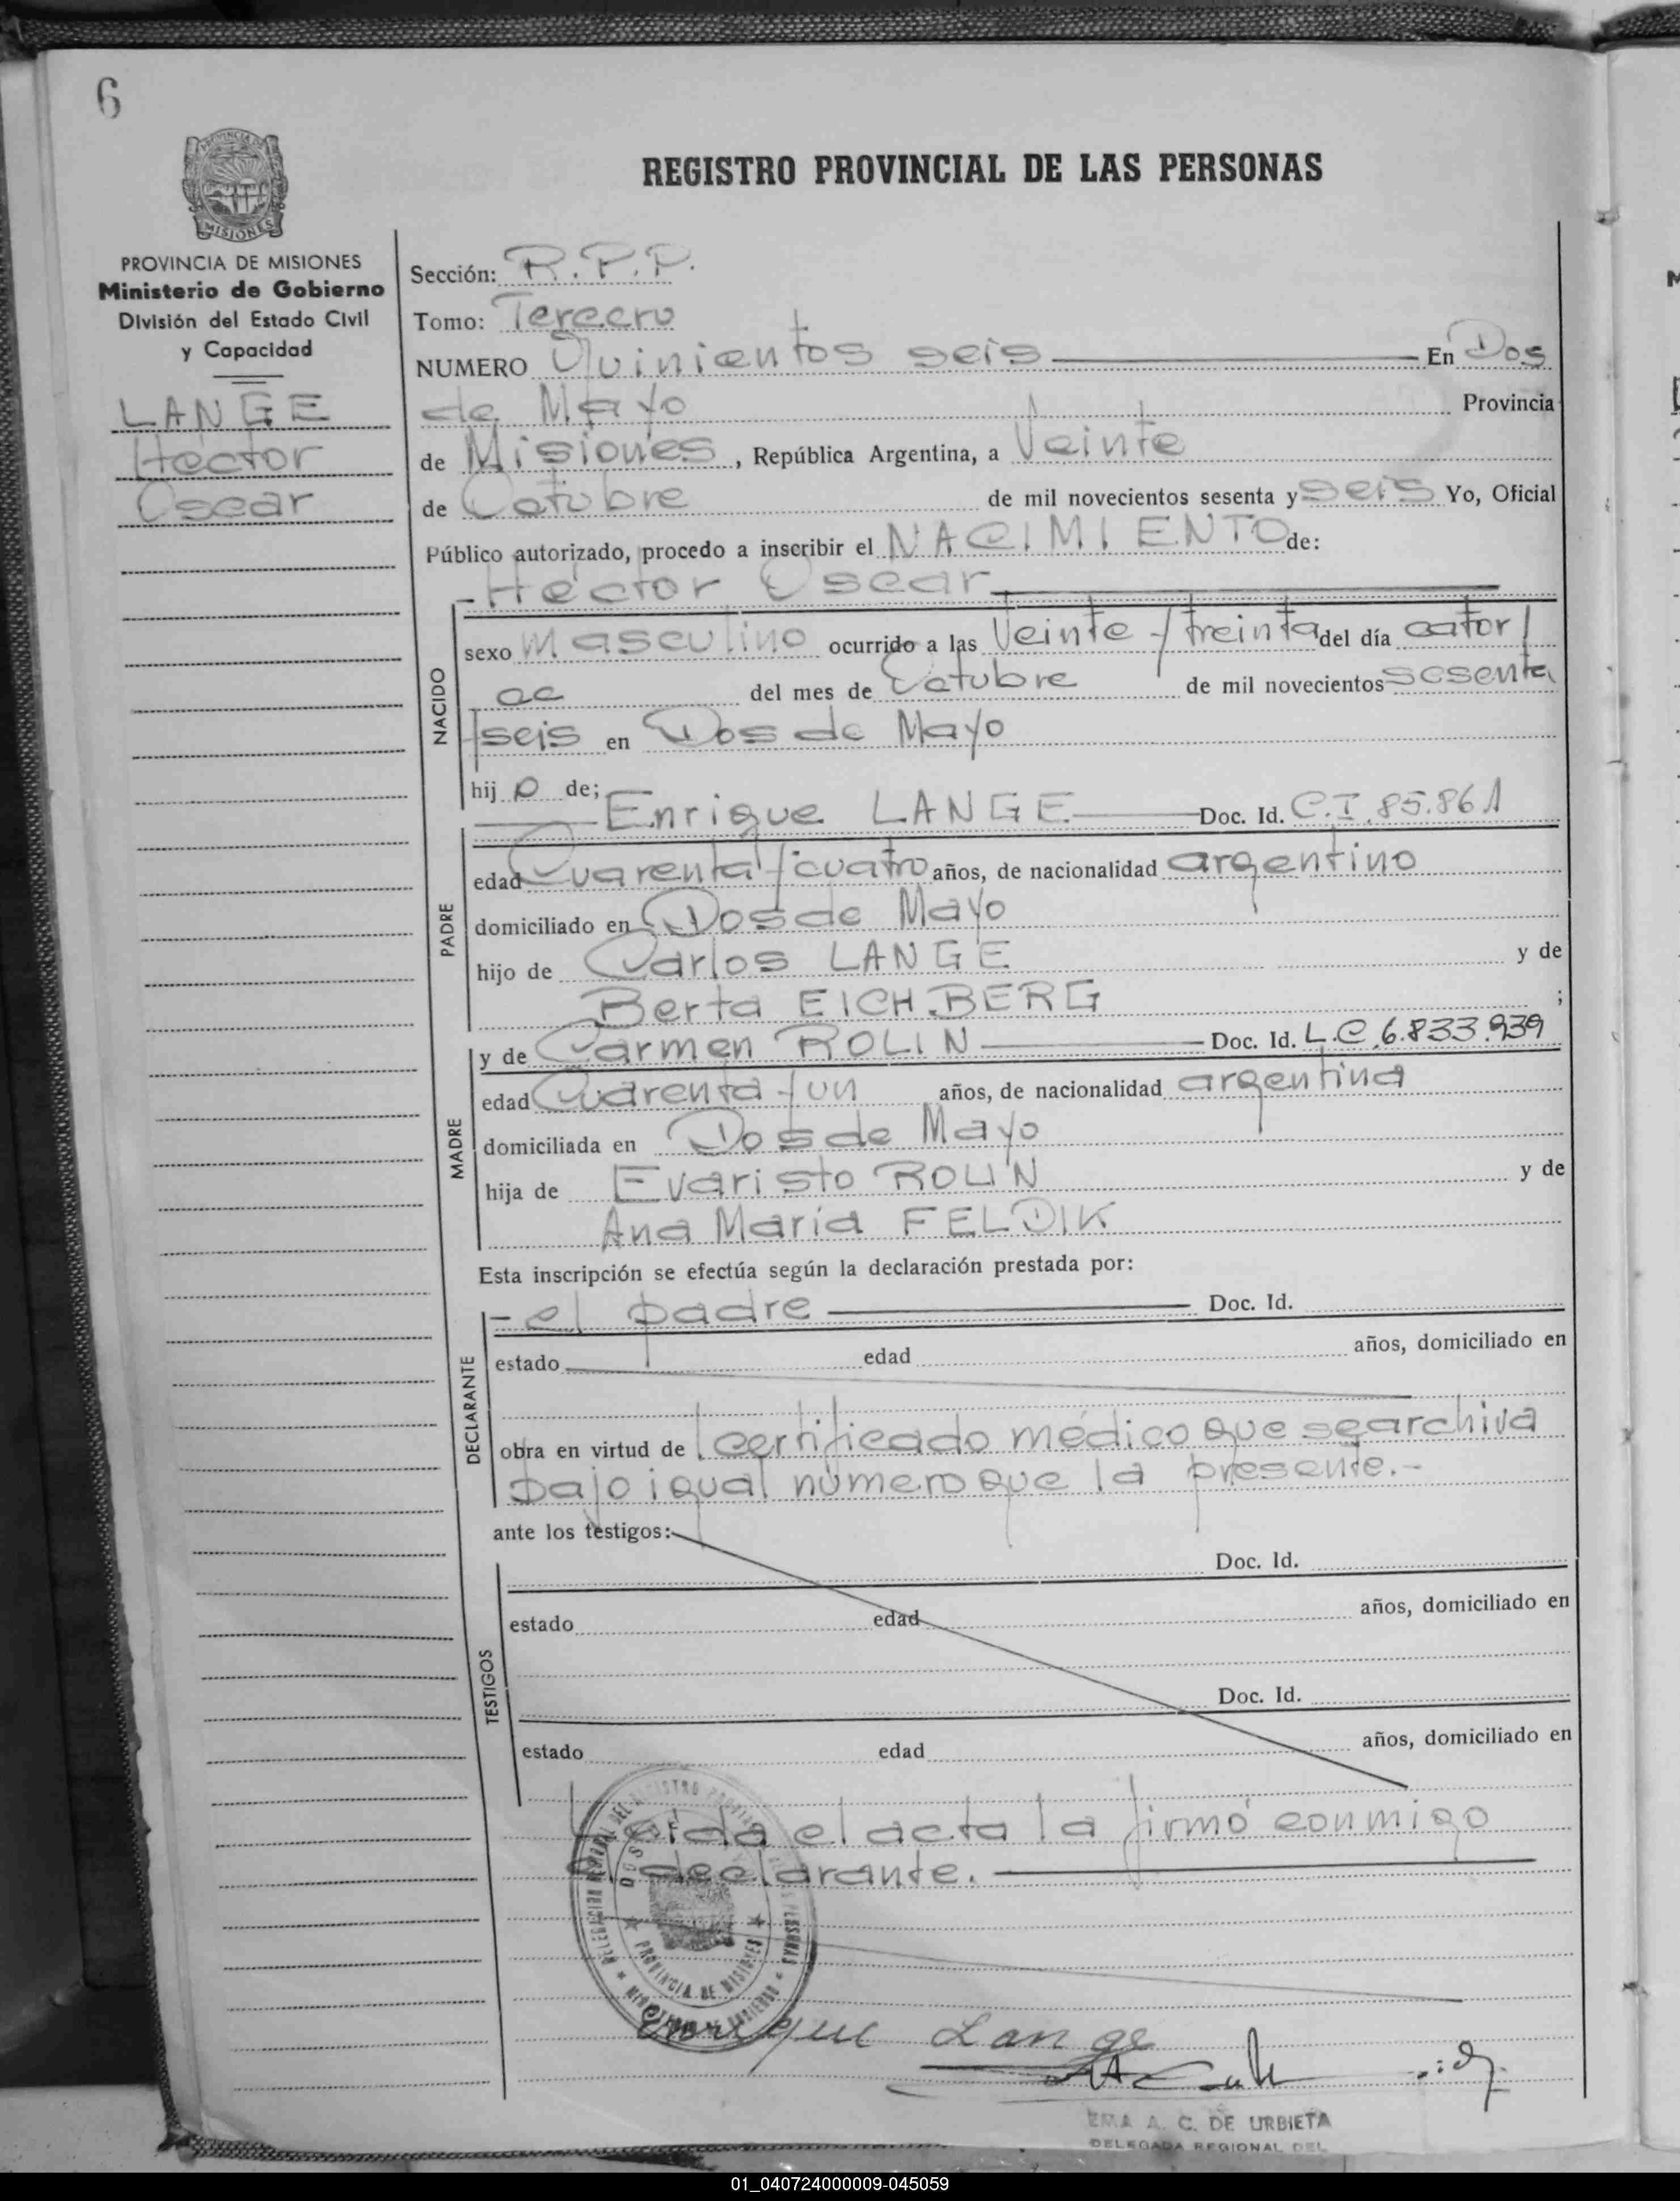 6
REGISTRO PROVINCIAL DE LAS PERSONAS
PROVINCIA DE MISIONES
Ministerio de Gobierno
División del Estado Civil
y Capacidad
LANGE
Héctor
Oscar
Sección: R.P.P.
Tomo: Tercero
NUMERO Quinientos seis En Dos
de Mayo Provincia
de Misiones, República Argentina, a Veinte
de Octubre de mil novecientos sesenta y seis Yo, Oficial
Público autorizado, procedo a inscribir el NACIMIENTO de:
- Héctor Oscar
NACIDO
sexo masculino ocurrido a las Veinte y treinta del día cator/
ce del mes de Octubre de mil novecientos sesenta
y seis en Dos de Mayo
hij o de;
Enrique LANGE Doc. Id. C.I. 85.861
PADRE
edad Cuarenta y cuatro años, de nacionalidad argentino
domiciliado en Dos de Mayo
hijo de Carlos LANGE y de
Berta EICHBERG ;
y de Carmen ROLIN Doc. Id. L.C. 6.833.939
MADRE
edad Cuarenta y un años, de nacionalidad argentina
domiciliada en Dos de Mayo
hija de Evaristo ROLIN y de
Ana María FELDIK
Esta inscripción se efectúa según la declaración prestada por:
DECLARANTE
- el padre Doc. Id.
estado edad años, domiciliado en
obra en virtud de certificado médico que se archiva
bajo igual número que la presente.-
ante los testigos:
TESTIGOS
Doc. Id.
estado edad años, domiciliado en
Doc. Id.
estado edad años, domiciliado en
Leída el acta la firmó conmigo
el declarante.
PROVINCIA DE MISIONES
Enrique Lange
EMA A. C. DE URBIETA
DELEGADA REGIONAL DEL
01_040724000009-045059